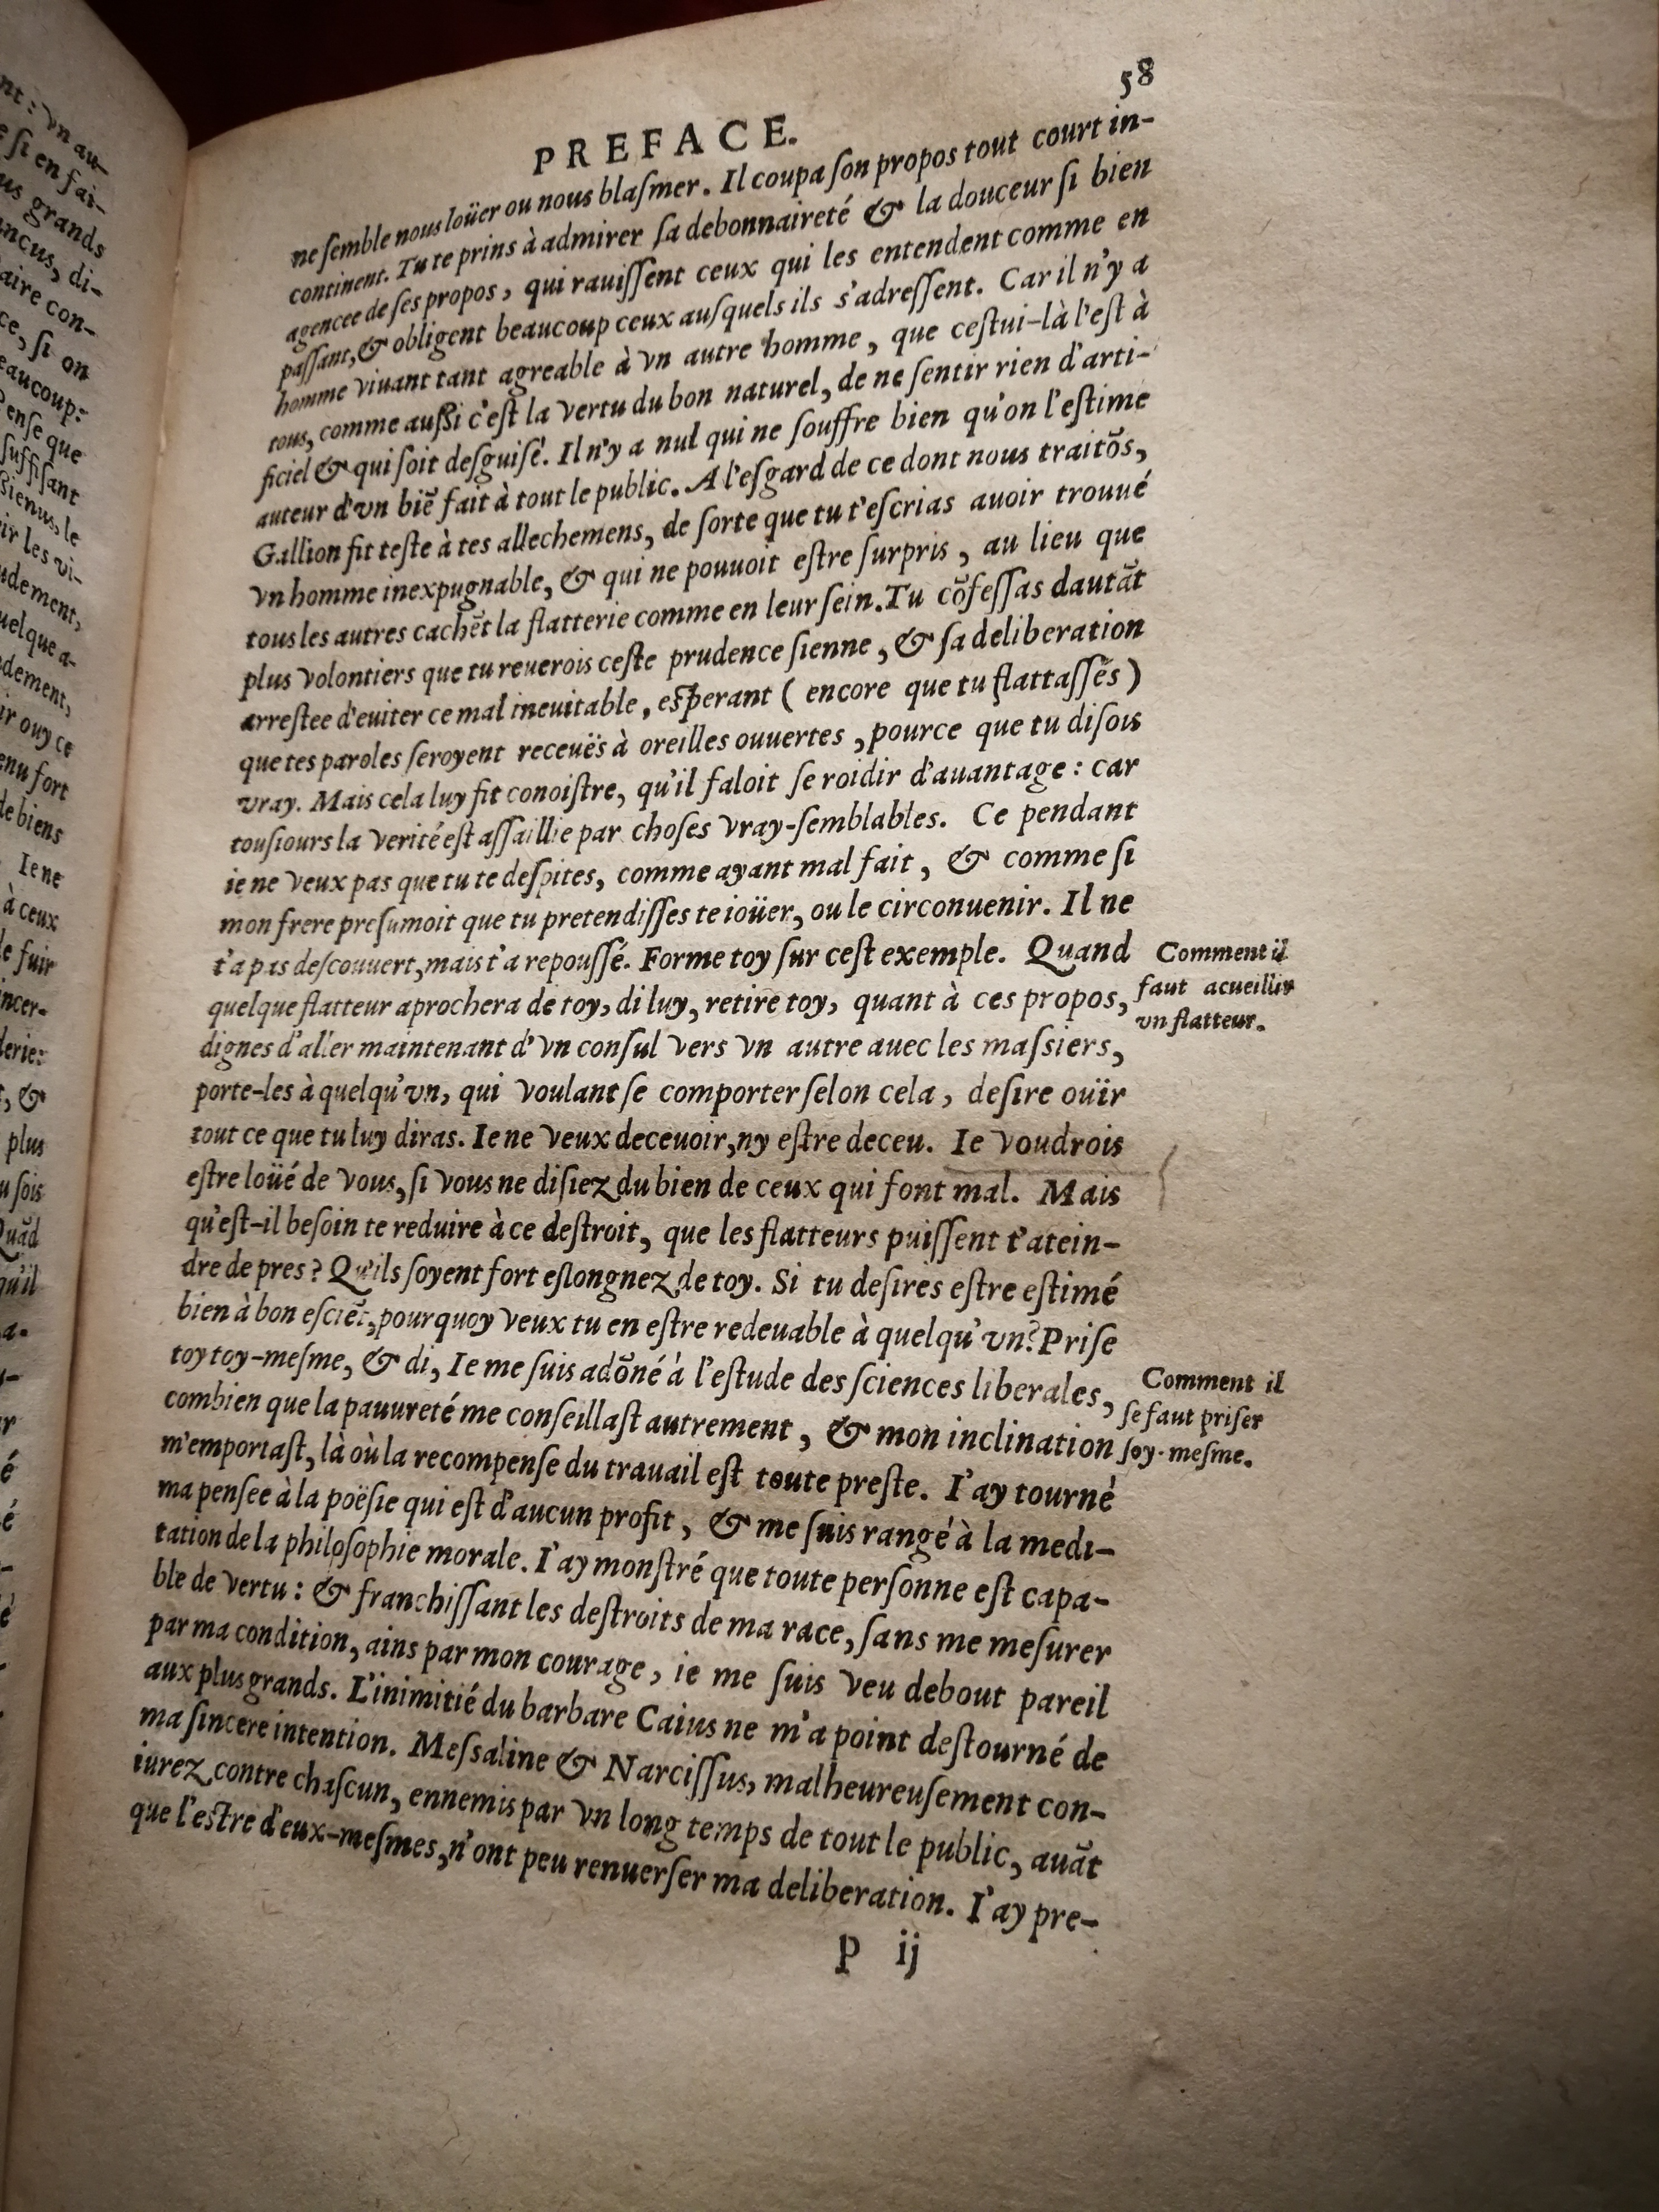 nt : vn au-
e ſi en fai-
us grands
ncus, di-
aire con-
ce, ſi on
eaucoup:
Penſe que
ſuffiſant
ſsienus, le
ir les vi-
udement,
uelque a-
dement,
ir ouy ce
enu fort
de biens
Ie ne
à ceux
le fuir
incer-
derie:
t, &
plus
u ſois
Quãd
qu'il
58
PREFACE.
ne ſemble nous loüer ou nous blaſmer. Il coupa ſon propos tout court in-
continent. Tu te prins à admirer ſa debonnaireté & la douceur ſi bien
agencee de ſes propos, qui rauiſſent ceux qui les entendent comme en
paſſant, & obligent beaucoup ceux auſquels ils s'adreſſent. Car il n'y a
homme viuant tant agreable à vn autre homme, que ceſtui-là l'eſt à
tous, comme auſsi c'eſt la vertu du bon naturel, de ne ſentir rien d'arti-
ficiel & qui ſoit deſguiſé. Il n'y a nul qui ne ſouffre bien qu'on l'eſtime
auteur d'vn biẽ fait à tout le public. A l'eſgard de ce dont nous traitõs,
Gallion fit teſte à tes allechemens, de ſorte que tu t'eſcrias auoir trouué
vn homme inexpugnable, & qui ne pouuoit eſtre ſurpris, au lieu que
tous les autres cachẽt la flatterie comme en leur ſein. Tu cõfeſſas dautãt
plus volontiers que tu reuerois ceſte prudence ſienne, & ſa deliberation
arreſtee d'euiter ce mal ineuitable, eſperant ( encore que tu flattaſſés )
que tes paroles ſeroyent receuës à oreilles ouuertes, pource que tu diſois
vray. Mais cela luy fit conoiſtre, qu'il faloit ſe roidir d'auantage : car
touſiours la verité eſt aſſaillie par choſes vray-ſemblables. Ce pendant
ie ne veux pas que tu te deſpites, comme ayant mal fait, & comme ſi
mon frere preſumoit que tu pretendiſſes te ioüer, ou le circonuenir. Il ne
t'a pas deſcouuert, mais t'a repouſſé. Forme toy ſur ceſt exemple. Quand
quelque flatteur aprochera de toy, di luy, retire toy, quant à ces propos,
dignes d'aller maintenant d'vn conſul vers vn autre auec les maſsiers,
porte-les à quelqu'vn, qui voulant ſe comporter ſelon cela, deſire ouïr
tout ce que tu luy diras. Ie ne veux deceuoir, ny eſtre deceu. Ie voudrois
eſtre loüé de vous, ſi vous ne diſiez du bien de ceux qui font mal. Mais
qu'eſt-il beſoin te reduire à ce deſtroit, que les flatteurs puiſſent t'atein-
dre de pres ? Qu'ils ſoyent fort eſlongnez de toy. Si tu deſires eſtre eſtimé
bien à bon eſciẽt, pourquoy veux tu en eſtre redeuable à quelqu'vn? Priſe
toy toy-meſme, & di, Ie me ſuis adõné à l'eſtude des ſciences liberales,
combien que la pauureté me conſeillaſt autrement, & mon inclination
m'emportaſt, là où la recompenſe du trauail eſt toute preſte. I'ay tourné
ma penſee à la poëſie qui eſt d'aucun profit, & me ſuis rangé à la medi-
tation de la philoſophie morale. I'ay monſtré que toute perſonne eſt capa-
ble de vertu : & franchiſſant les deſtroits de ma race, ſans me meſurer
par ma condition, ains par mon courage, ie me ſuis veu debout pareil
aux plus grands. L'inimitié du barbare Caius ne m'a point deſtourné de
ma ſincere intention. Meſsaline & Narciſſus, malheureuſement con-
iurez contre chaſcun, ennemis par vn long temps de tout le public, auãt
que l'eſtre d'eux-meſmes, n'ont peu renuerſer ma deliberation. I'ay pre-
P ij
Comment il
faut acueillir
vn flatteur.
Comment il
ſe faut priſer
ſoy-meſme.